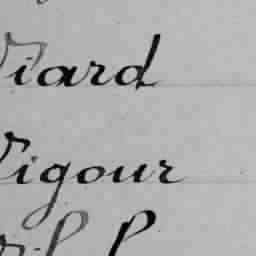 Viard
Vigour